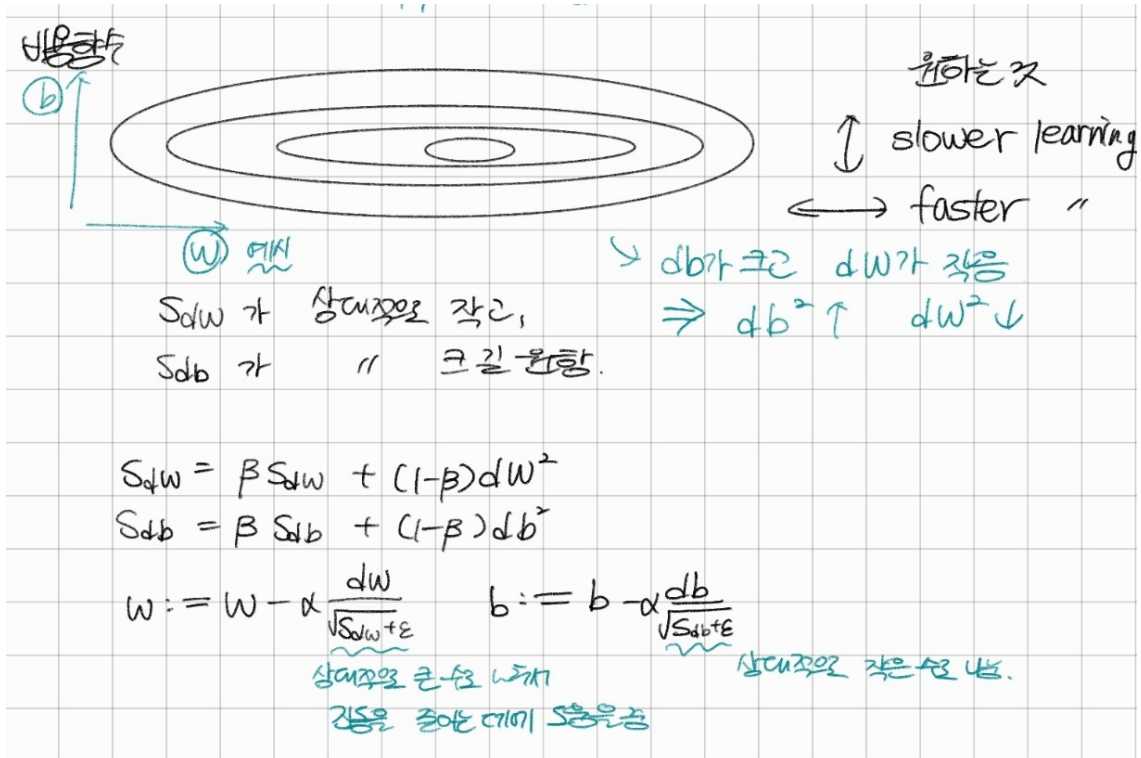 비용함수
b
원하는 것
↕ slower learning
↔ faster 〃
w 예시
↘ db가 크고 dw가 작음
⇒ db² ↑ dw² ↓
Sdw 가 상대적으로 작고,
Sdb 가 〃 크길 원함.
Sdw = βSdw + (1-β)dw²
Sdb = βSdb + (1-β)db²
w := w - α dw/√Sdw+ε b := b - α db/√Sdb+ε
상대적으로 큰 수로 나눠서
상대적으로 작은 수로 나눔.
진동을 줄이는 데에 도움을 줌